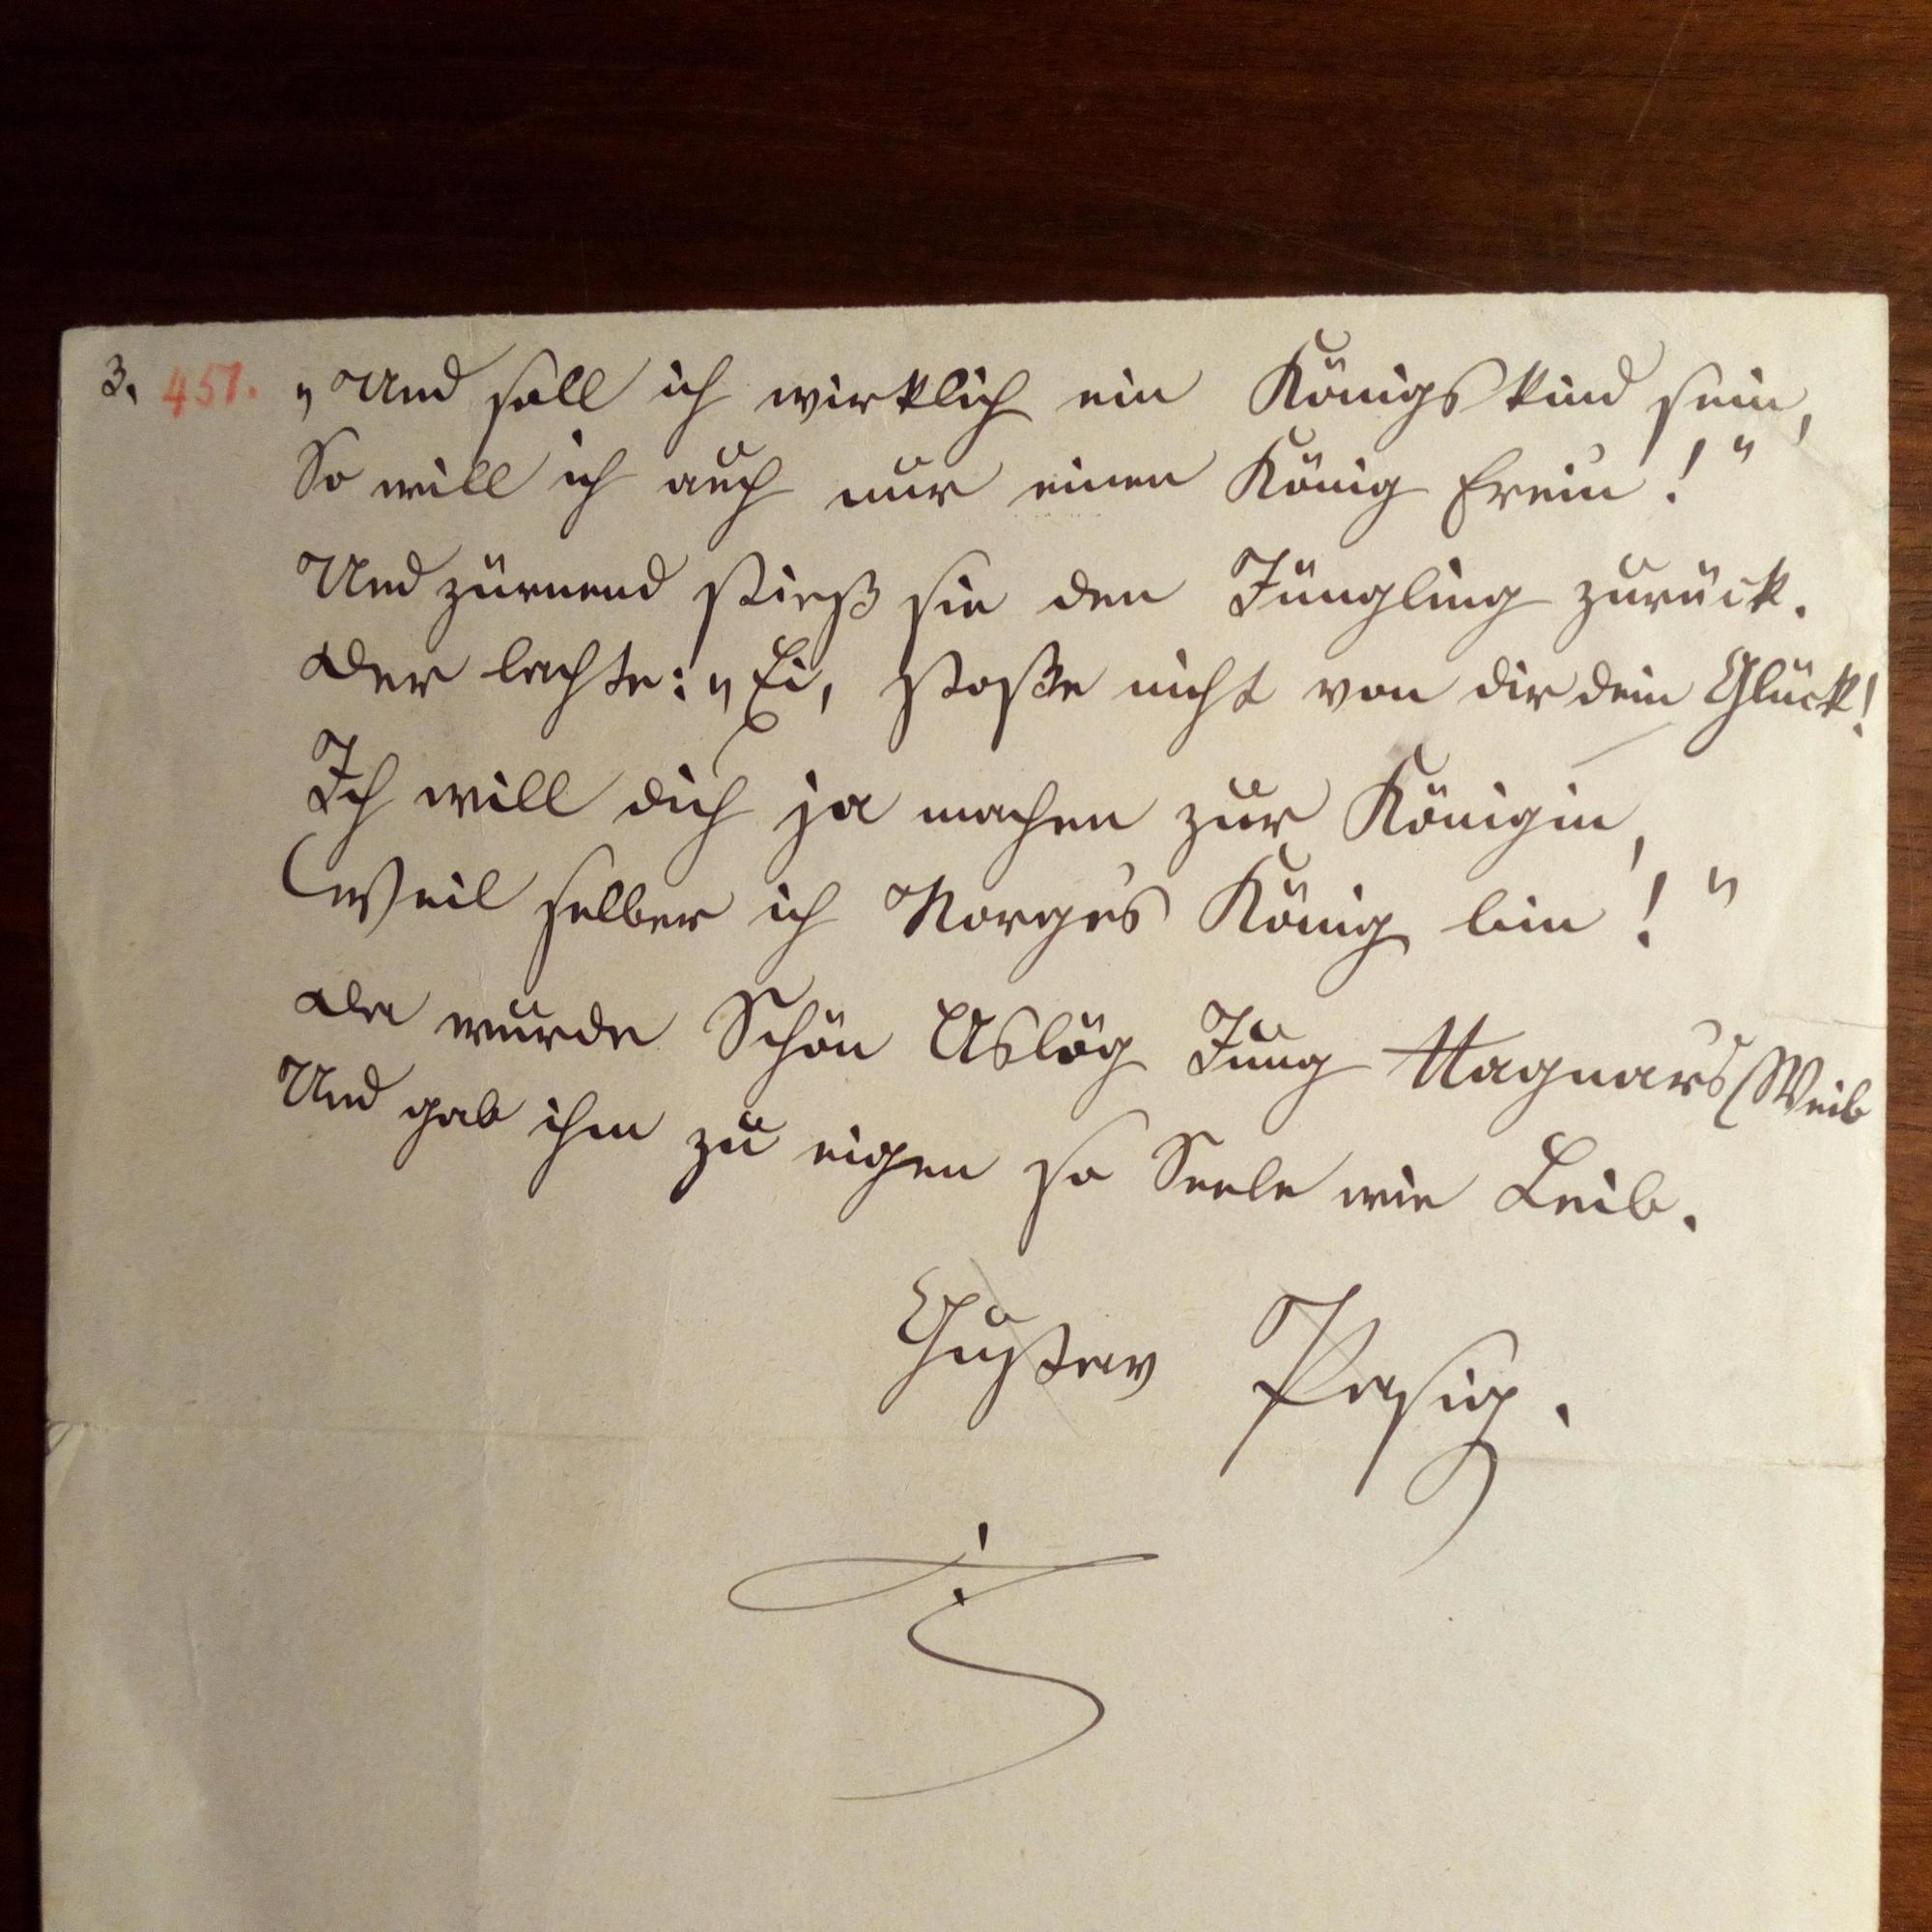 3. 451. „Und soll ich wirklich ein Königskind sein,
So will ich auch nur einen König frein!“
Und zürnend stieß sie den Jüngling zurück.
Der lachte: „Ei, stoße nicht von dir dein Glück!
Ich will dich ja machen zur Königin,
Weil selber ich Norge's König bin!“
Da wurde Schön Aslög Jung Ragnar's Weib
Und gab ihm zu eigen so Seele wie Leib.
Gustav Pasig.